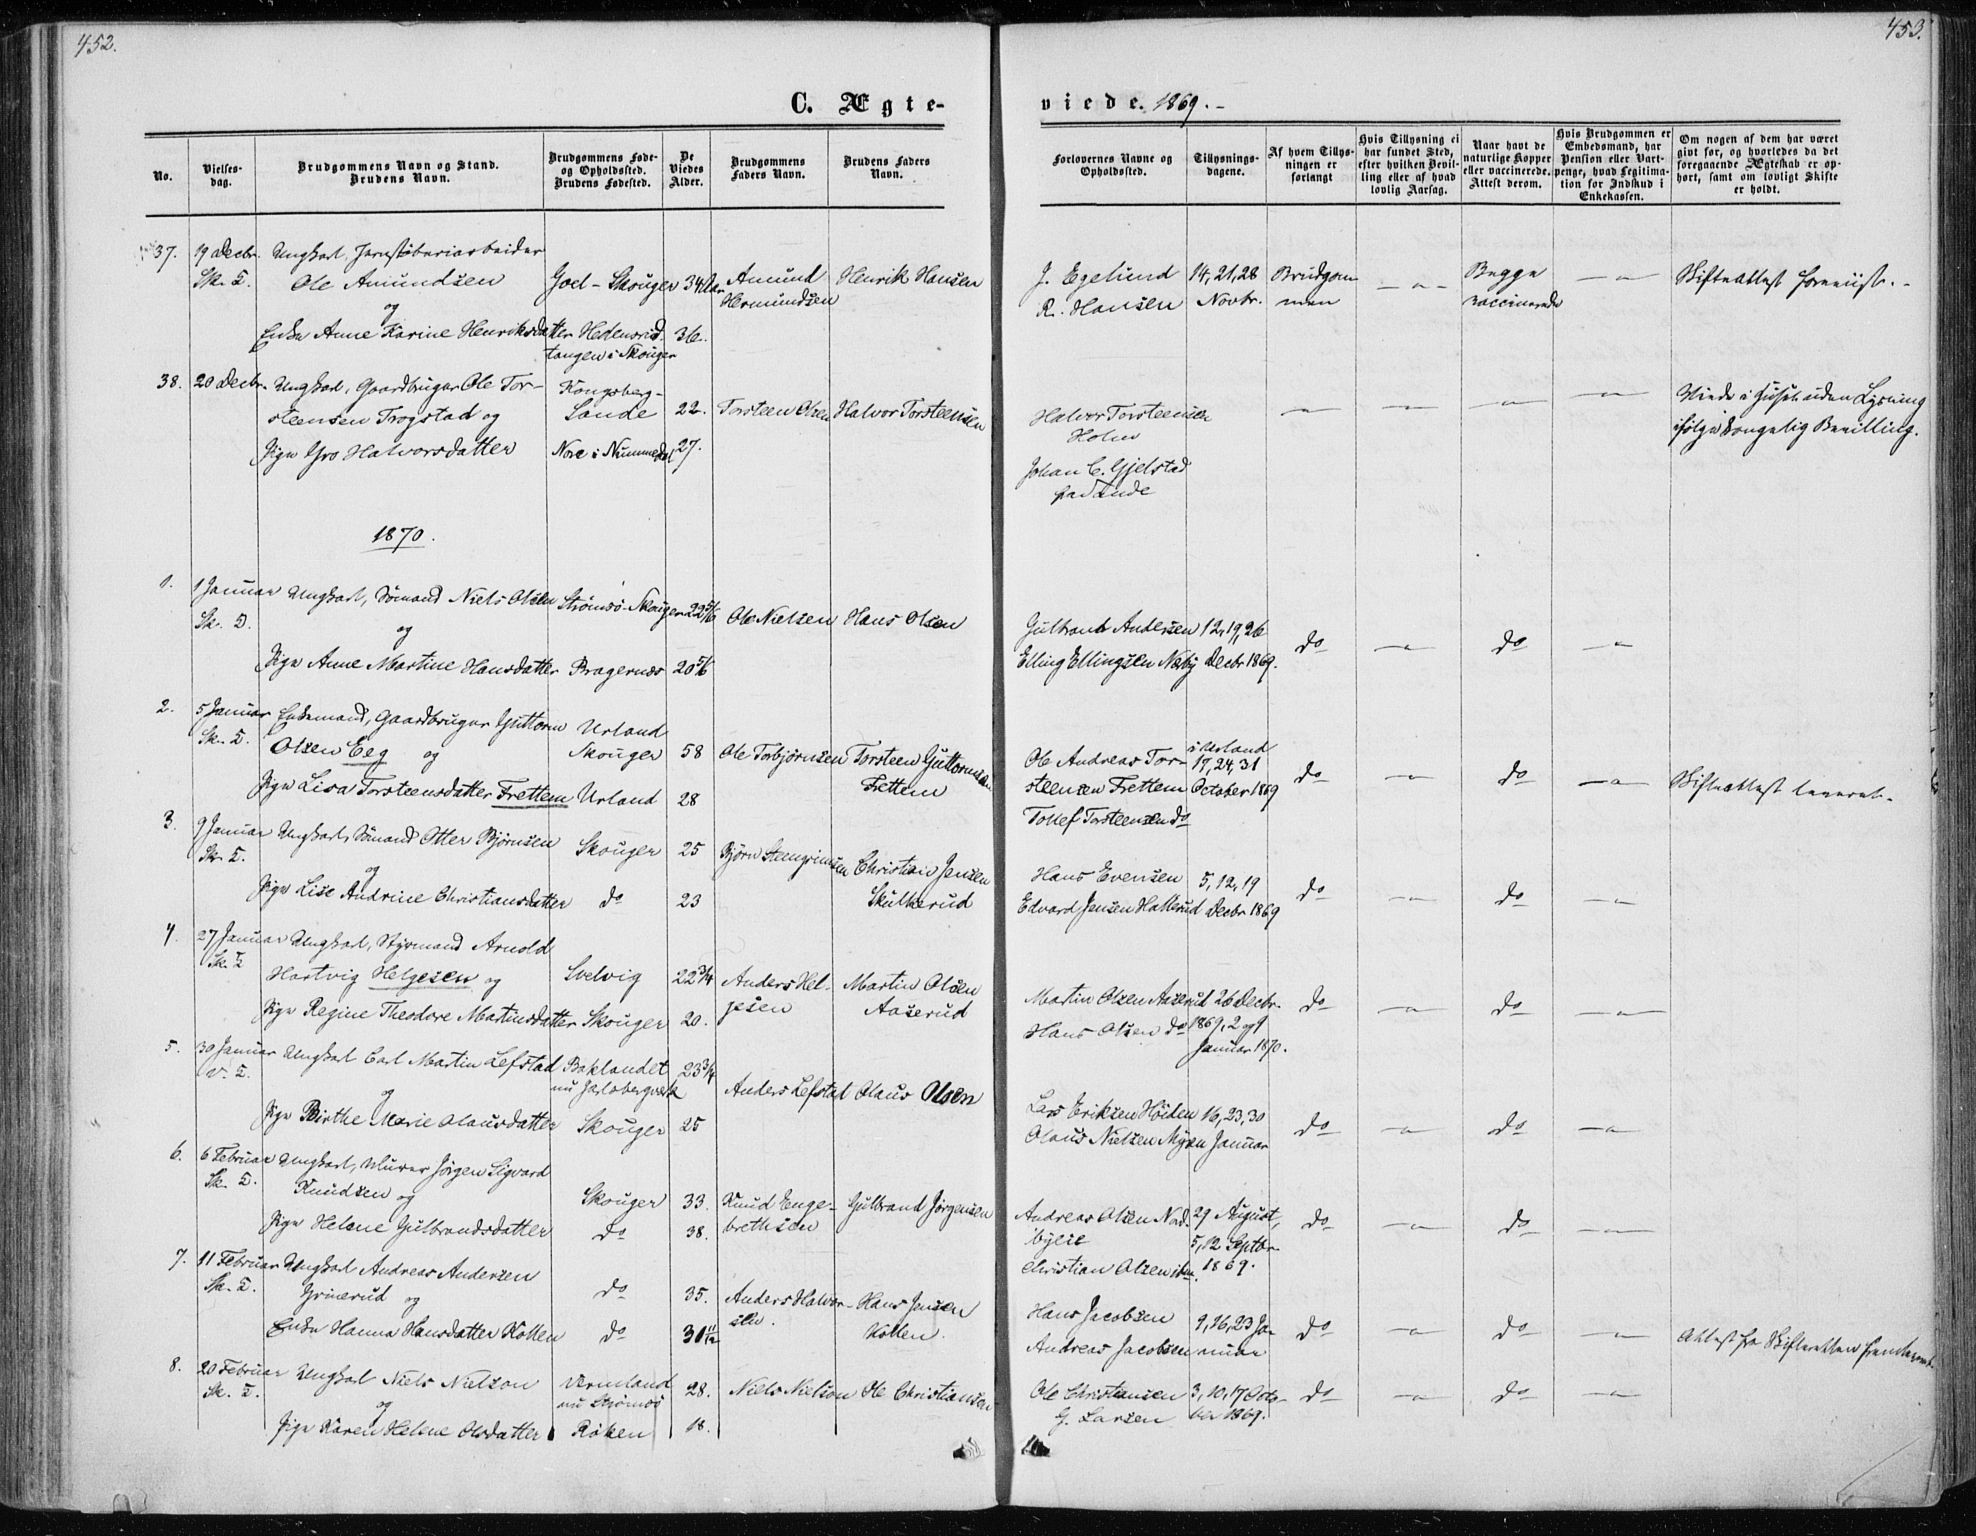 452.
453.
C. Ægte-
viede. 1869.-
No.
Vielses-
dag.
Brudgommens Navn og Stand.
Brudens Navn.
Brudgommens Føde-
og Opholdssted.
Brudens Fødested.
De
Viedes
Alder.
Brudgommens
Faders Navn.
Brudens Faders
Navn.
Forlovernes Navne og
Opholdssted.
Tillysnings-
dagene.
Af hvem Tillys-
ningen er
forlangt
Hvis Tillysning ei
har fundet Sted,
efter hvilken Bevil-
ling eller af hvad
lovlig Aarsag.
Naar havt de
naturlige Kopper
eller vaccinerede.
Attest derom.
Hvis Brudgommen er
Embedsmand, har
Pension eller Vart-
penge, hvad Legitima-
tion for Indskud i
Enkekassen.
Om nogen af dem har været
gift før, og hvorledes da det
foregaaende Ægteskab er op-
hørt, samt om lovligt Skifte
er holdt.
37. 19 Decbr. Ungkarl, Jernstøberiarbeider
Sk. K. Ole Amundsen Goel - Skouger 34 Aar Amund Henrik Hansen
Hermundsen
og
Enke Anne Karine Henriksdatter Hedensrud 36.
tangen i Skouger
J. Egelund 14, 21, 28 Brudgom Begge
R. Hansen Novbr. men vaccinerede
Skifteattest foreviist.-
38. 20 Decbr. Ungkarl, Gaardbruger Ole Tor- Kongsberg-
steensen Trogstad og Sande 22. Torsteen Olsen Halvor Torsteensen
Pige Gro Halvorsdatter Nore i Nummedal 27.
Halvor Torsteensen
Holm
Johan C. Gjelstad
paa Sande
Viede i Huset uden Lysning
ifølge kongelig Bevilling.
1870.
1. 1 Januar Ungkarl, Sømand Niels Olsen Strømsø-Skouger 22 5/6 Ole Nielsen Hans Olsen
og
Pige Anne Martine Hansdatter Bragernæs 20 5/6
Gulbrand Andersen 12, 19, 26 do do
Elling Ellingsen Næby Decbr 1869.
2. 5 Januar Enkemand, Gaardbruger Guttorm Urland
Olsen Eeg og Skouger 58 Ole Torbjørnsen Torsteen Guttormsen
Frettem
Pige Lisa Torsteensdatter Frettem Urland 28
i Urland
Ole Andreas Tor- 17, 24, 31
steensen Frettem October 1869 do do
Tollef Torsteensen do
Skifteattest leveret.
3. 9 Januar Ungkarl, Sømand Otter Bjørnsen Skouger 25 Bjørn Steengrimsen Christian Jensen
og Skulterud
Pige Lise Andrine Christiansdatter do 23
Hans Evensen 5, 12, 19 do do
Edvard Jensen Hallerud Decbr 1869
4. 27 Januar Ungkarl, Styrmand Arnold
Hartvig Helgesen og Svelvig 22 3/4 Anders Hel- Martin Olsen
gesen Aaserud
Pige Regine Theodore Martinsdatter Skouger 20.
Martin Olsen Aaserud 26 Decbr. do do
Hans Olsen do 1869, 2 og 9
Januar 1870.
5. 30 Januar Ungkarl Carl Martin Lefstad Baklandet 23 3/4
nu Jarlsbergværk Anders Lefstad Olaus Olsen
og
Pige Birthe Marie Olausdatter Skouger 25
Lars Eriksen Høiden 16, 23, 30 do do
Olaus Nielsen Myren Januar
6. 6 Februar Ungkarl, Murer Jørgen Sigvard
Knudsen og Skouger 33. Knud Enge- Gulbrand Jørgensen
brethsen
Pige Helene Gulbrandsdatter do 38.
Andreas Olsen 29 August, do do
5, 12 Septbr.
Christian Olsen ibm. 1869.
7. 11 Februar Ungkarl Andreas Andersen
Grinerud og do 35. Anders Halvor- Hans Jensen
sen. Kollen.
Enke Hanna Hansdatter Kollen do 30 11/12
Hans Jacobsen 9, 16, 23 Ja- do do
Andreas Jacobsen nuar
Attest fra Skifteretten fremleveret.
8. 20 Februar Ungkarl Niels Nielson Vermland 28. Niels Nielson Ole Christiansen
nu Strømsø
og
Pige Karen Helene Olsdatter Røken 18.
Ole Christiansen 3, 10, 17 Octo- do do
G. Larsen ber 1869.